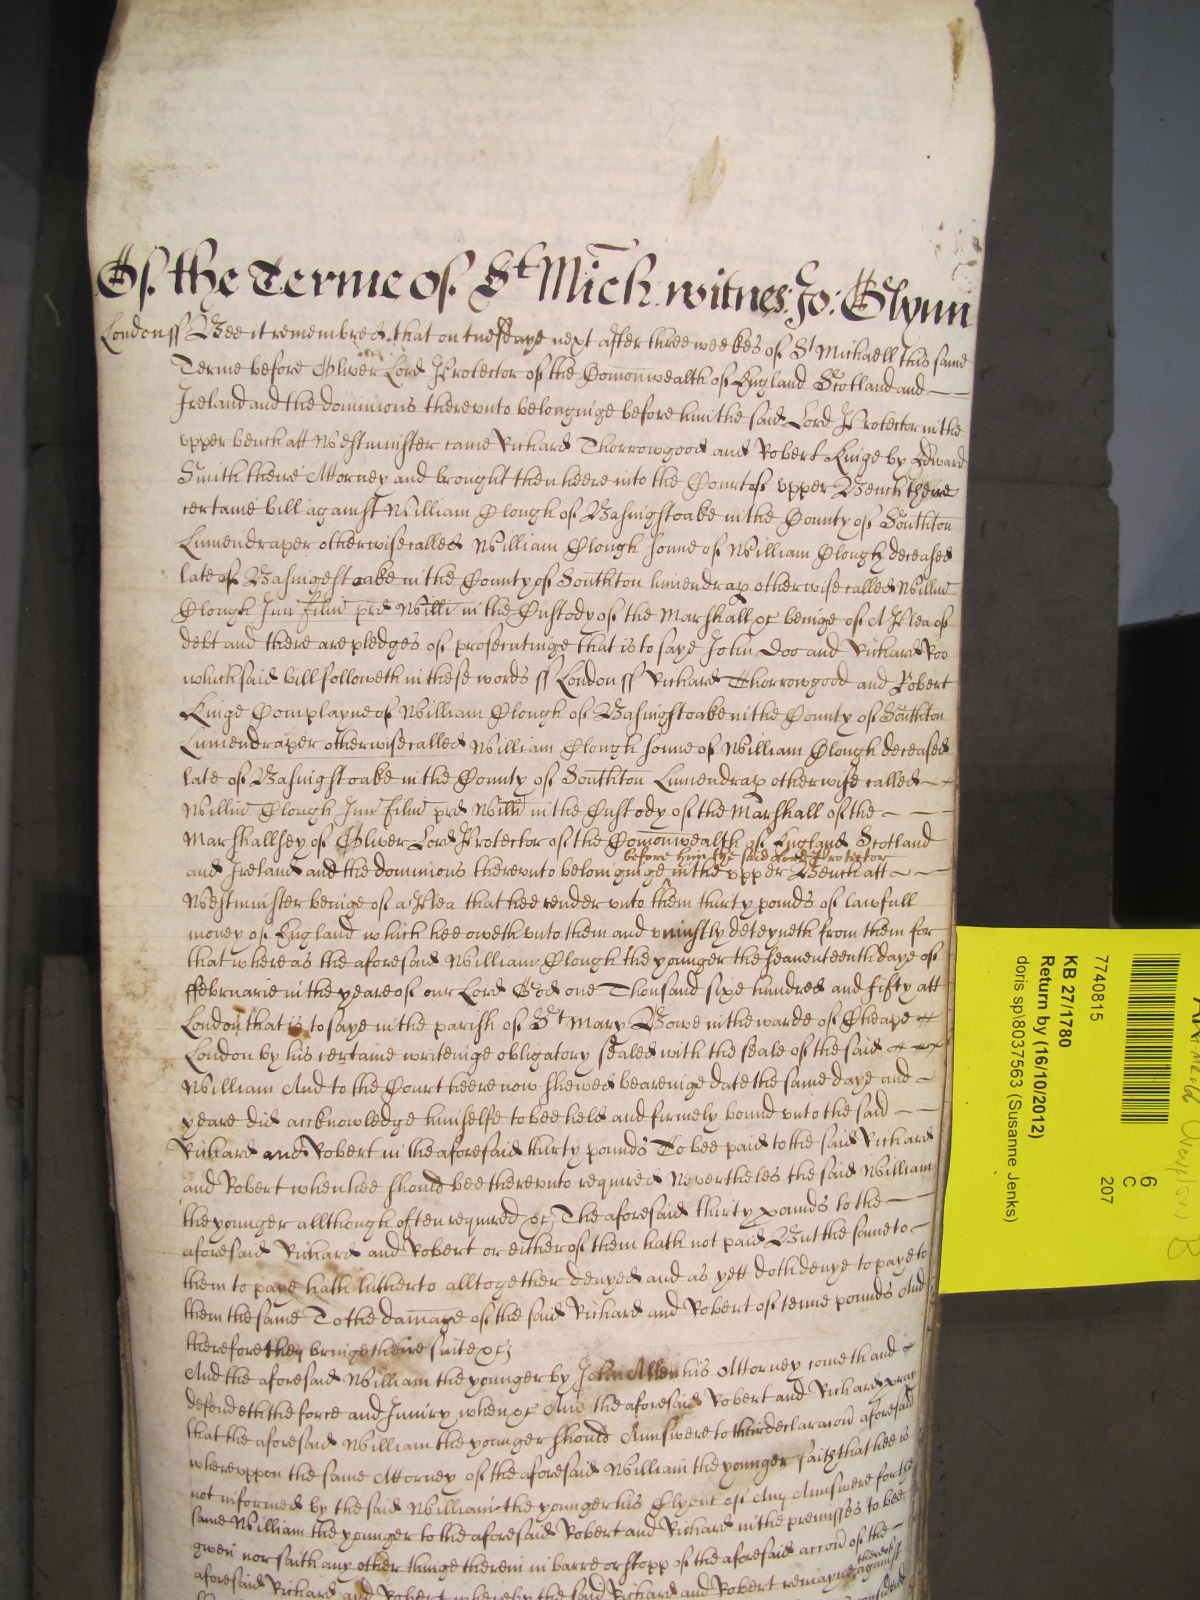 Of the Terme of St Mich witnes: Jo: Glynn
London ss Bee it remembred that on tuesdaye next after three weekes of St Michaell this same
Terme before Oliver Lord Protector of the Comonwealth of England Scotland and
Ireland and the dominions therevnto belonginge before him the said Lord Protector in the
vpper bench att Westminster came Richard Thorrowgood and Robert Kinge by Edward
Smith theire Attorney and brought then heere into the Court of vpper Bench theire
certaine bill against William Clough of Basingstoake in the County of Southton
Linnendraper otherwise called William Clough sonne of William Clough deceased
late of Basingestoake in the County of Southton linnendrap otherwise called Willm
Clough Jun filiu pred Willi in the Custody of the Marshall &c beinge of A Plea of
debt and there are pledges of prosecutinge that is to saye John Doo and Richard Roo
which said bill followeth in these words ss London ss Richard Thorrowgood and Robert
Kinge Complayne of William Clough of Basingstoake in the County of Southton
Linnendraper otherwise called William Clough sonne of William Clough deceased
late of Basingstoake in the County of Southton Linnendrap otherwise called
Willm Clough Jun filiu pred Willi in the Custody of the Marshall of the
Marshallsey of Oliver Lord Protector of the Comonwealth of England Scotland
before him the said Lord Protector
and Ireland and the dominions therevnto belonginge in the vpper Bench att
Westminster beinge of a Plea that hee render vnto them thirty pounds of lawfull
money of England which hee oweth vnto them and vniustly deteyneth from them for
that whereas the aforesaid William Clough the younger the seaventeenth daye of
ffebruarie in the yeare of our Lord God one Thousand sixe hundred and fifty att
London that is to saye in the parish of St Mary Bowe in the warde of Cheape
London by his certaine writeinge obligatory sealed with the seale of the said
William And to the Court heere now shewed beareinge date the same daye and
yeare did acknowledge himselfe to bee held and firmely bound vnto the said
Richard and Robert in the aforesaid thirty pounds To bee paid to the said Richard
and Robert when hee should bee therevnto required Nevertheles the said William
the younger allthough often required &c The aforesaid thirty pounds to the
aforesaid Richard and Robert or either of them hath not paid But the same to
them to paye hath hitherto alltogether denyed and as yett doth denye to paye to
them the same To the damage of the said Richard and Robert of tenne pounds And
therefore they bringe theire suite &c
And the aforesaid William the younger by John Allen his Attorney cometh and
defendeth the force and Iniury when &c And the aforesaid Robert and Richard pray
that the aforesaid William the younger should Annswere to their declaracon aforesaid
wherevppon the same Attorney of the aforesaid William the younger saith that hee is
not informed by the said William the younger his Clyent of Any Annswere for the
same William the younger to the aforesaid Robert and Richard in the premisses to bee
given nor saith any other thinge therein in barre or stopp of the aforesaid accon of the
thereof
aforesaid Richard and Robert whereby the said Richard and Robert remayne against
7740815
KB 27/1780
Return by (16/10/2012)
doris sp\8037563 (Susanne Jenks)
6
C
207